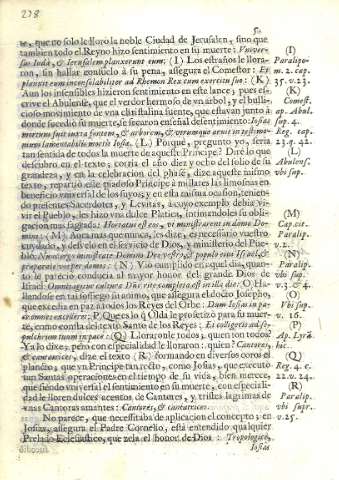 278
50
te, que no solo le lloro la noble Ciudad de Jerusalen, sino que
tambien todo el Reyno hizo sentimiento en su muerte: Univer-
sus Iuda, & Ierusalem planxerunt eum: (I) Los estraños le llora-
ron, sin hallar consuelo à su pena, assegura el Comestor: Et
planxit eum inconsolabiliter ad Rhemon Rex cum exercitu suo: (K)
Aun los insensibles hizieron sentimiento en este lance; pues es-
crive el Abulense, que el verdor hermoso de vn arbol, y el bulli-
cioso movimiento de vna cristalina fuente, que estavan junto à
donde sucediò su muerte, se secaron en señal de sentimiento: Iosias
mortuus fuit iuxta fontem, & arborem, & utrumque aruit in testimo-
nium lamentabilis mortis Iosiæ. (L) Porquè, pregunto yo, serà
tan sentida de todos la muerte de aquesse Principe? Dirè lo que
descubro en el texto; corria el año diez y ocho del solio de su
grandeza, y en la celebracion del phase, dize aquesse mismo
texto, repartiò este piadoso Principe à millares las limosnas en
beneficio vniversal de los suyos, y en esta misma ocasion,
do presentes Sacerdotes, y Levitas, à cuyo exemplo debia vi-
vir el Pueblo, les hizo vna dulce Platica, intimandoles su obli-
gacion mas sagrada: Hortatus est eos, ut ministrarent in domo Do-
mini: (M) Aora mas que nunca, les dize, es necessario vuestro
cuydado, y desvelo en el servicio de Dios, y ministerio del Pue-
blo: Nunc ergo ministrate Domino Deo vestro, & populo eius Israel, &
præparate vos per domos: (N) Y viò cumplido en aquel dia, quan-
to le previno conducia al mayor honor del grande Dios de
Israel: Omnis igitur cultura Dñi rite completa est in illa die: (O) Ha-
llandose en tal sosiego su animo, que assegura el docto Josepho,
que excedia en paz à todos los Reyes del Orbe: Dum Iosias in pa-
ce omnes excelleret: P. Que es lo q̃ Olda le profetizò para su muer-
te, como consta del texto Santo de los Reyes: Et colligeris ad se-
pulchrum tuum in pace: (Q) Lloraronle todos, quien con todo?
Ya lo dixe; pero con especialidad le lloraron: quien? Cantores,
& cantatrices, dize el texto (R) formando en diversos coros el
planòto, que vn Principe tan recto, como Josias, que executò
tan Santas operaciones en el tiempo de su vida, bien merece,
que siendo vniversal el sentimiento en su muerte, con especiali-
dad le lloren dulces acentos de Cantores, y tristes lagrimas de
vnas Cantoras amantes: Cantores, & cantatrices.
No parece, que necessitaba de aplicacion el concepto; en
Josias, assegura el Padre Cornelio, està entendido qualquier
Prelado Eclesiastico, que zela el honor de Dios: Tropologicè,
Iosias
(I)
Paralipo-
m. 2. cap.
35. v. 23.
(K)
Comest.
ap. Abul.
sup. 4.
Reg. cap.
23. q. 42.
(L)
Abulens.
vbi sup.
(M)
Cap. cit.
Paralip.
v. 2.
(N)
Paralip.
vbi sup.
v. 3. & 4.
(O)
vbi sup.
v. 16.
(P)
Ap. Lyrã
hic.
(Q)
Reg. 4. c.
22. v. 24.
(R)
Paralip.
vbi supr.
v. 25.